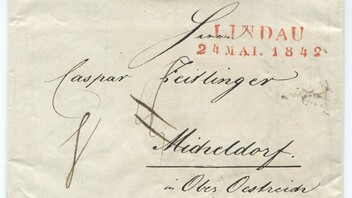 Herrn
LINDAU
24 MAI. 1842
Caspar Zeitlinger
Micheldorf.
in Ober Oestreich